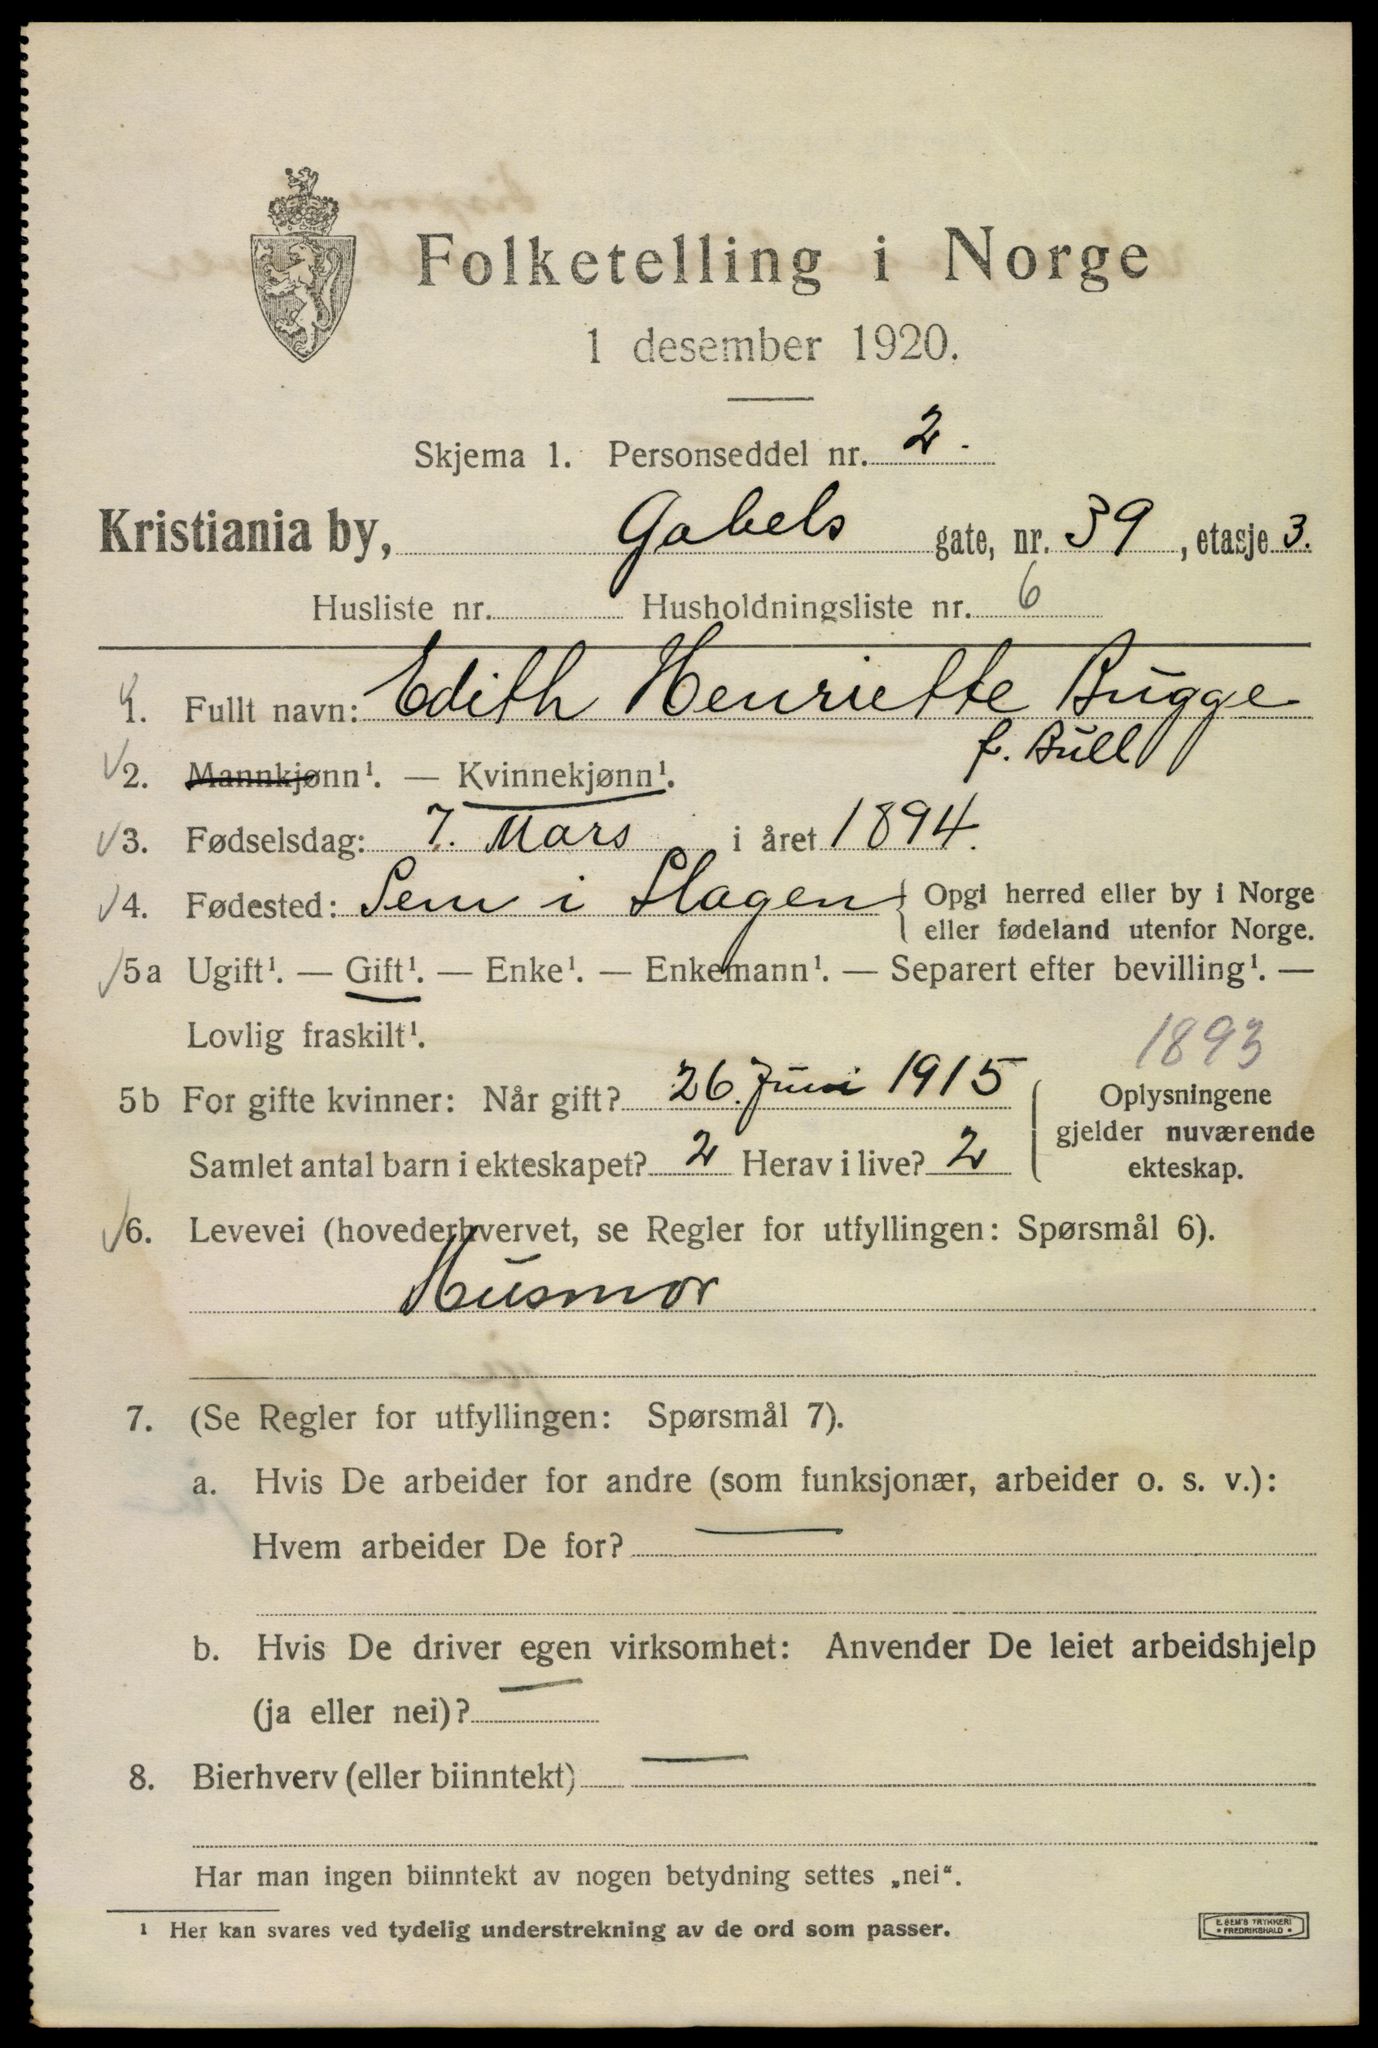 Folketelling i Norge
1 desember 1920.
Skjema 1. Personseddel nr. 2.
Kristiania by, Gabels gate, nr. 39, etasje 3.
Husliste nr. Husholdningsliste nr. 6
1. Fullt navn: Edith Henriette Bugge
f. Bull
2. Mannkjønn¹. — Kvinnekjønn¹.
3. Fødselsdag: 7. Mars i året 1894.
4. Fødested: Sem i Slagen { Opgi herred eller by i Norge
eller fødeland utenfor Norge.
5a Ugift¹. — Gift¹. — Enke¹. — Enkemann¹. — Separert efter bevilling¹. —
Lovlig fraskilt¹.
1893
5b For gifte kvinner: Når gift? 26. Juni 1915
Samlet antal barn i ekteskapet? 2 Herav i live? 2
Oplysningene
gjelder nuværende
ekteskap.
6. Levevei (hovederhvervet, se Regler for utfyllingen: Spørsmål 6).
Husmor
7. (Se Regler for utfyllingen: Spørsmål 7).
a. Hvis De arbeider for andre (som funksjonær, arbeider o. s. v.):
Hvem arbeider De for? —
b. Hvis De driver egen virksomhet: Anvender De leiet arbeidshjelp
(ja eller nei)? —
8. Bierhverv (eller biinntekt) —
Har man ingen biinntekt av nogen betydning settes „nei“.
¹ Her kan svares ved tydelig understrekning av de ord som passer.
E. SEM'S TRYKKERI
• FREDRIKSHALD •